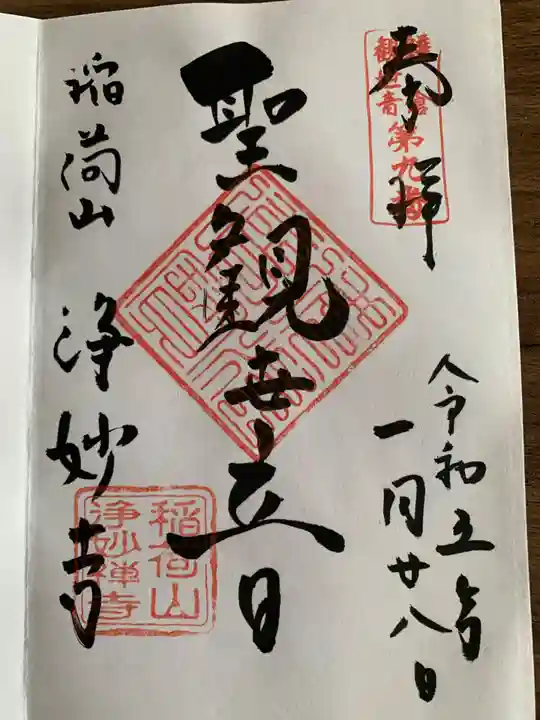 奉拝
鎌倉
観世音
第九番
令和五年
一月廿八日
聖観世音
稲荷山
浄妙寺
稲荷山
浄妙禅寺